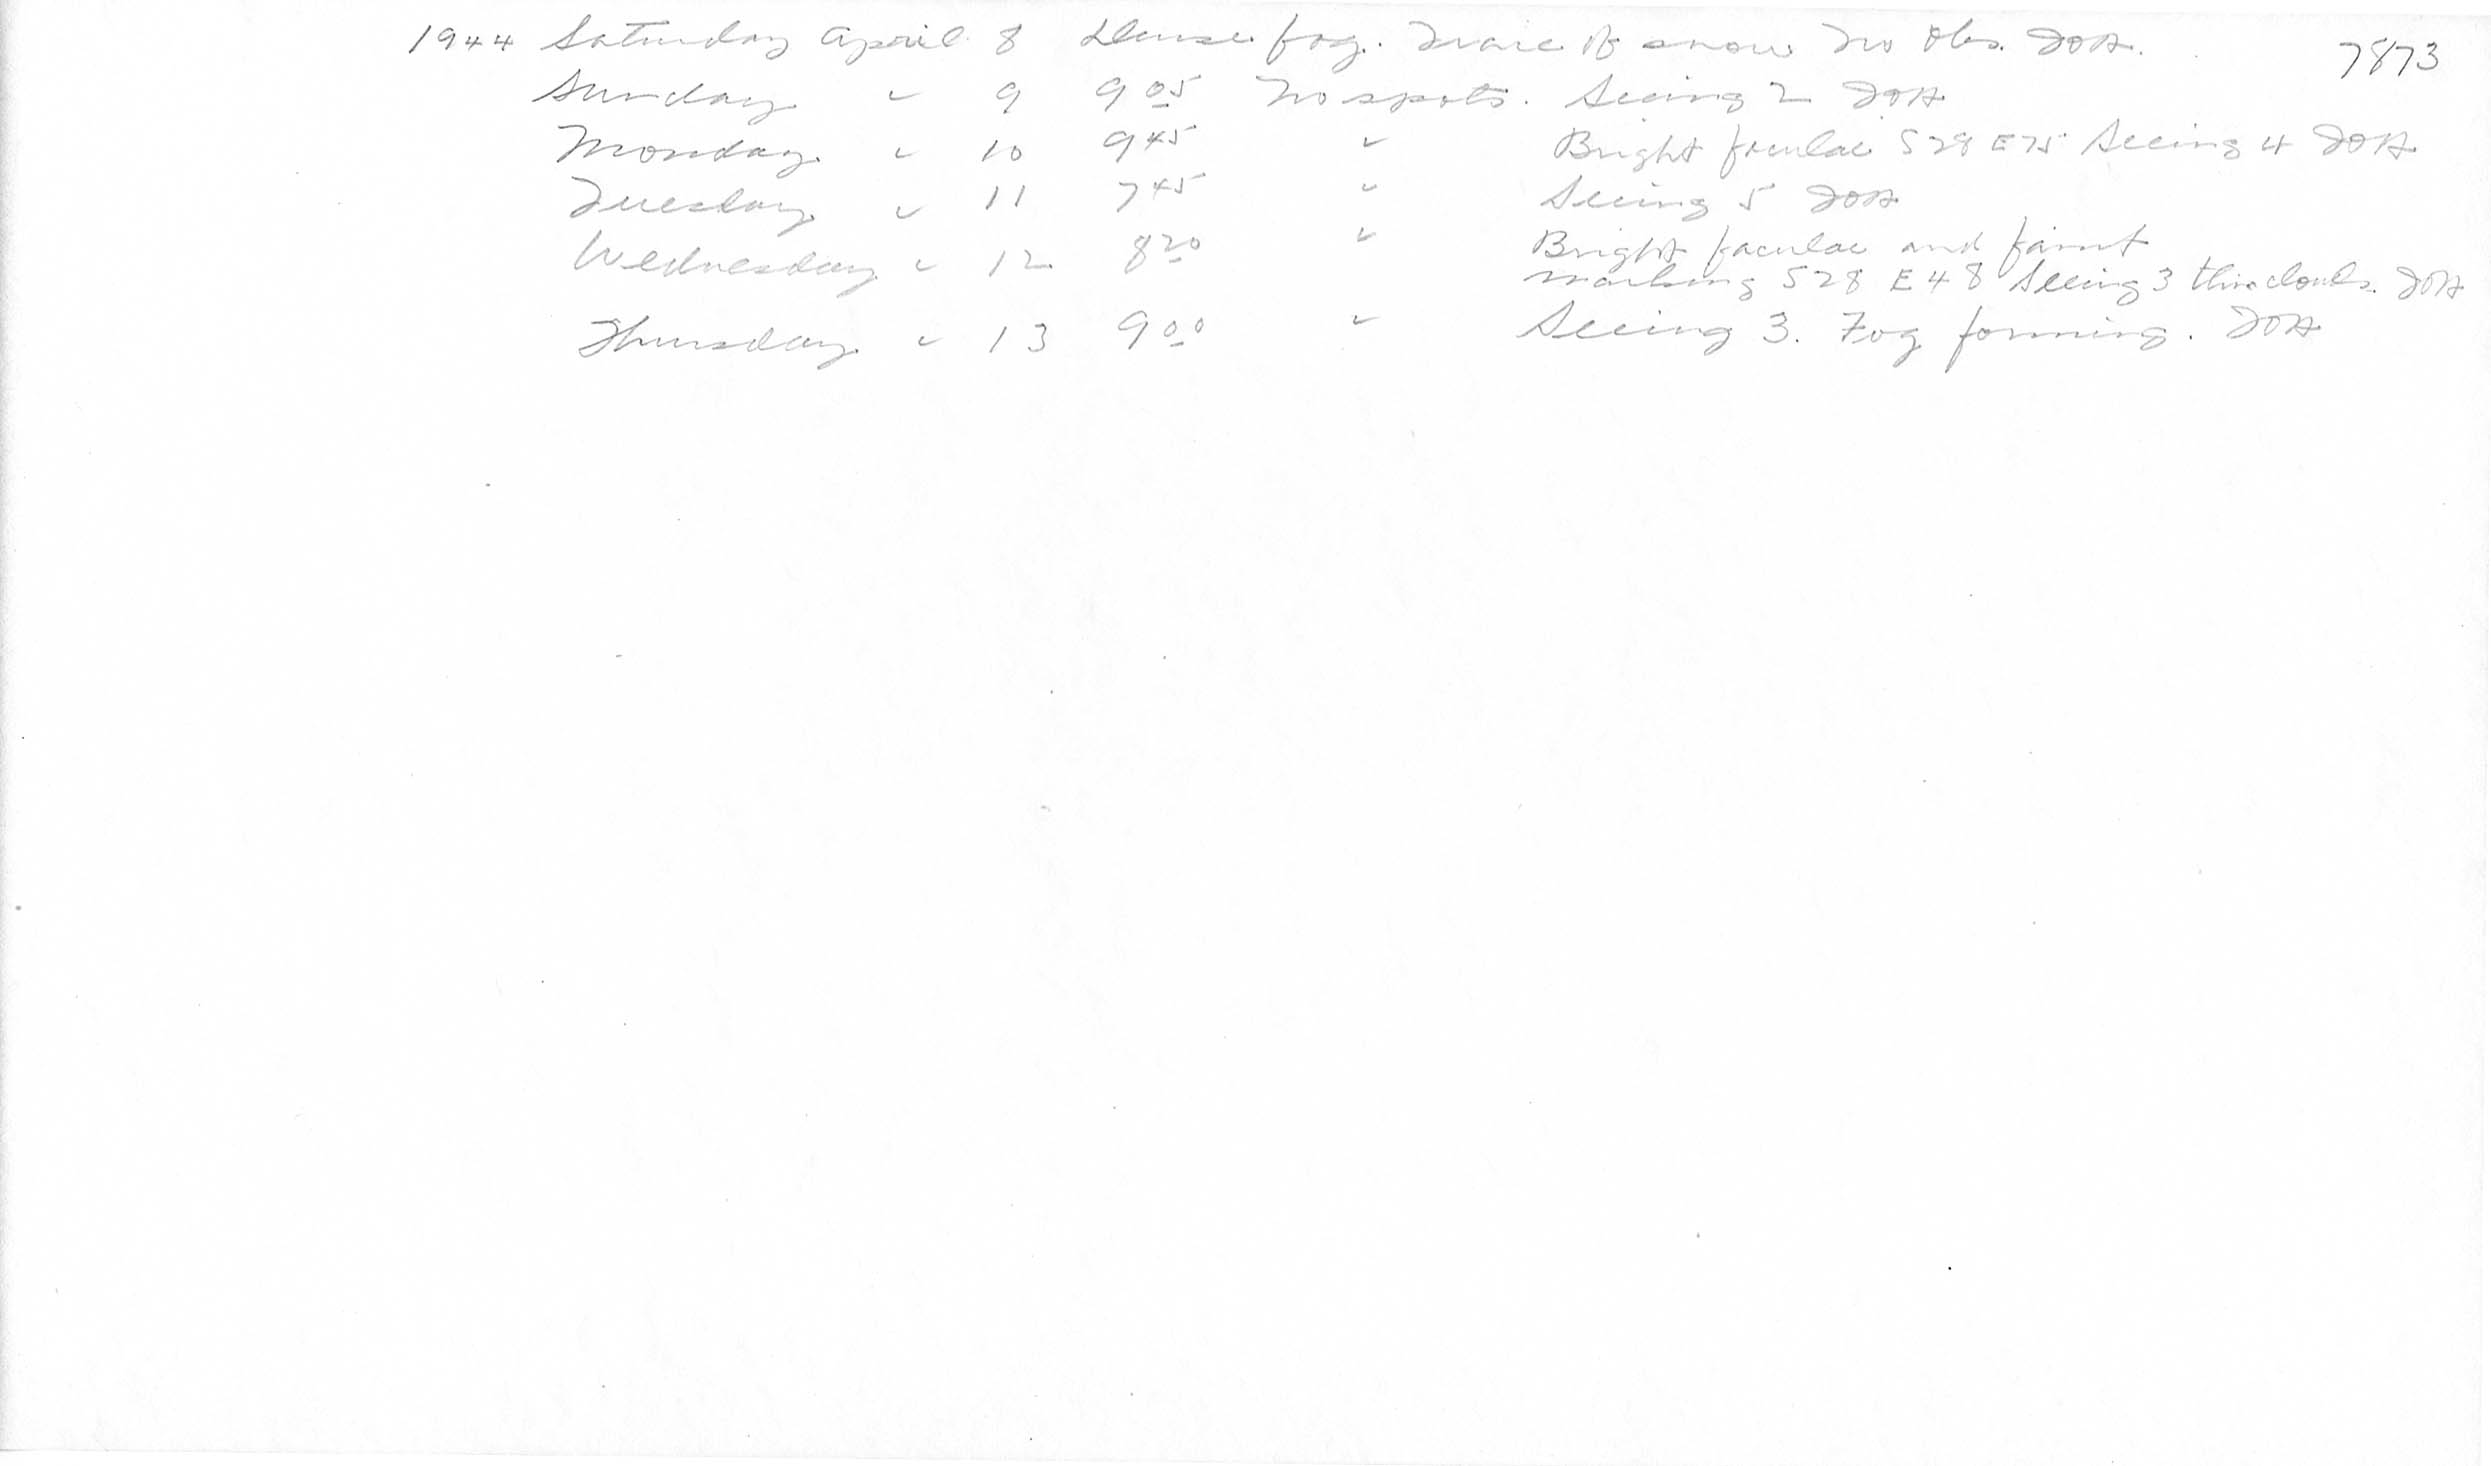 1944 Saturday April 8 Dense fog. Trace of snow No Obs. JOH. 7873
Sunday " 9 9 05 No spots. Seeing 2 JOH
Monday " 10 9 45 " Bright faculae S28 E75 Seeing 4 JOH
Tuesday " 11 7 45 " Seeing 5 JOH
Wednesday " 12 8 20 " Bright faculae and faint
marking S28 E48 Seeing 3 thin clouds. JOH
Thursday " 13 9 00 " Seeing 3. Fog forming. JOH